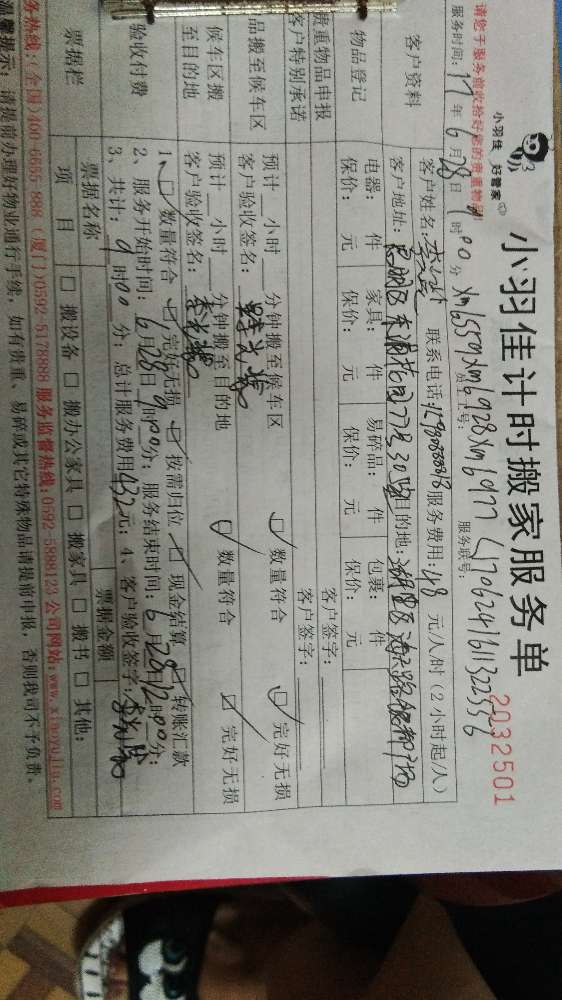 小羽佳计时搬家服务单
2032501
小羽佳 好管家
请您于服务前收拾好您的贵重物品!
服务时间: 17年6月28日 时00分 员工工号: 服务联号:
客户资料
客户姓名: 联系电话: 服务费用: 48 元/人时(2小时起/人)
客户地址: 目的地:
物品登记
电器: 件 家具: 件 易碎品: 件 包裹: 件
保价: 元 保价: 元 保价: 元 保价: 元
贵重物品申报 客户签字:
客户特别承诺 客户签字:
品搬至候车区
预计__小时__分钟搬至候车区 数量符合 完好无损
客户验收签名:
候车区搬至目的地
预计__小时__分钟搬至目的地 数量符合 完好无损
客户验收签名:
验收付费
1、 数量符合 完好无损 按需归位 现金结算 转账汇款
2、服务开始时间: 6月28日9时00分; 服务结束时间: 6月28日12时00分;
3、共计: 9时00分; 总计服务费用432元; 4、客户验收签字:
票据栏
票据名称 票据金额
项 目 □ 搬设备 □ 搬办公家具 □ 搬家具 □ 搬书 □ 其他:
务热线: (全国)400-6655-888 (厦门)0592-5178888 服务监督热线: 0592-5888123 公司网站: www.xiaoyujia.com
温馨提示: 请提前办理好物业通行手续, 如有贵重、易碎或其它特殊物品请提前申报, 否则我司不予负责。